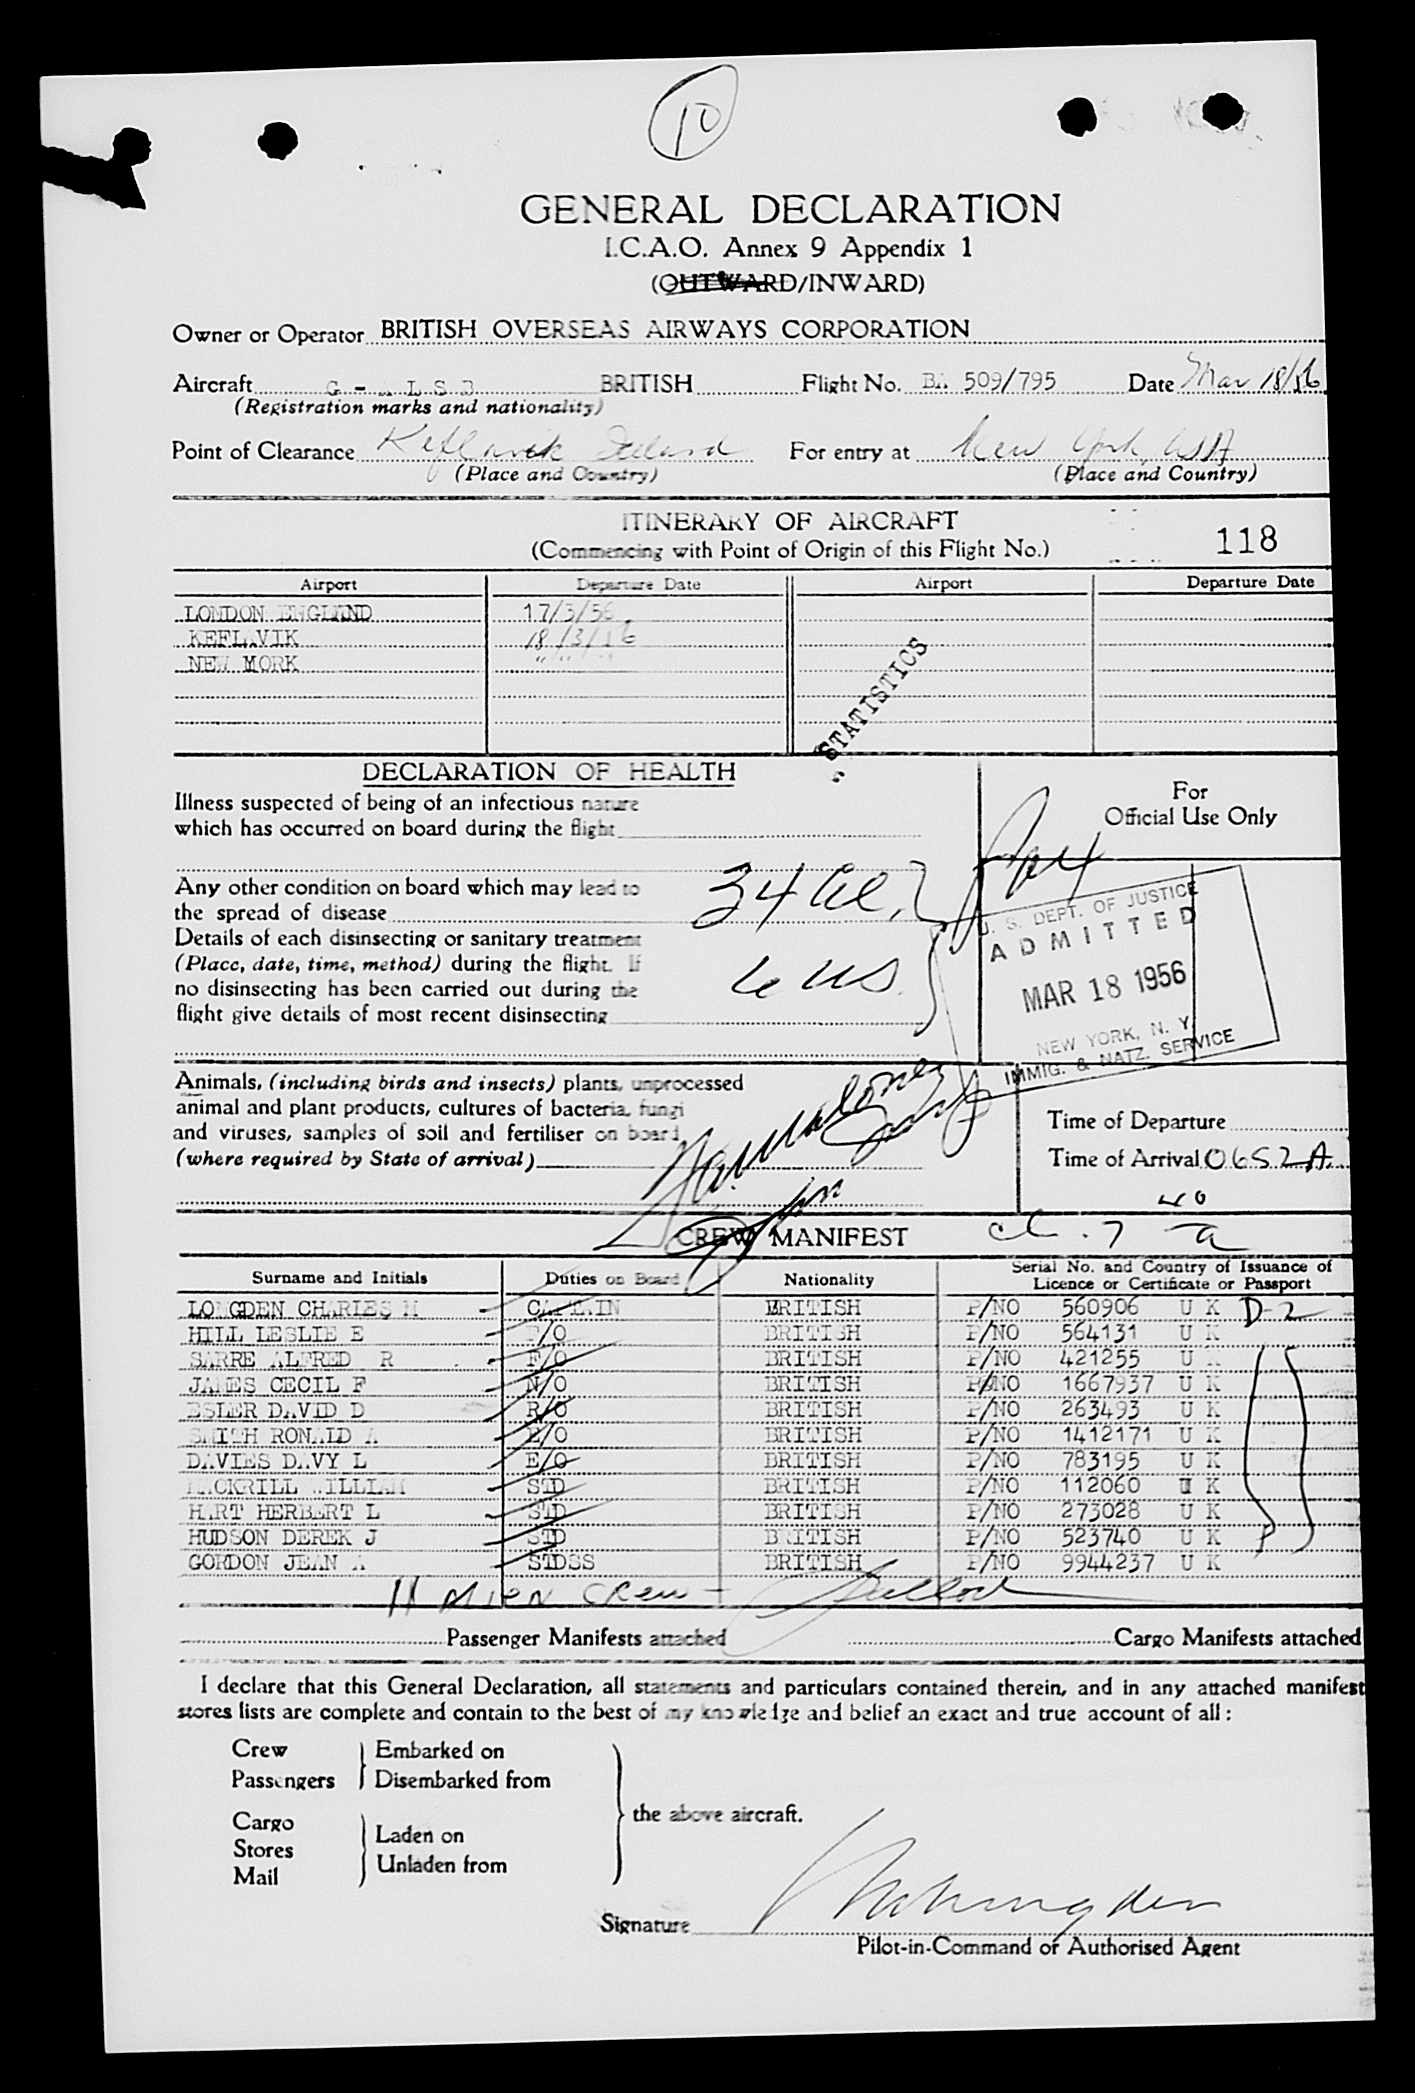 10
GENERAL DECLARATION
I.C.A.O. Annex 9 Appendix 1
(OUTWARD/INWARD)
Owner or Operator BRITISH OVERSEAS AIRWAYS CORPORATION
Aircraft G - A L S B BRITISH Flight No. BA 509/795 Date Mar 18/56
(Registration marks and nationality)
Point of Clearance Keflavik Iceland For entry at New York, USA
(Place and Country) (Place and Country)
ITINERARY OF AIRCRAFT
(Commencing with Point of Origin of this Flight No.) 118
Airport Departure Date Airport Departure Date
LONDON ENGLAND 17/3/56
KEFLAVIK 18/3/56
NEW YORK " " "
STATISTICS
DECLARATION OF HEALTH
Illness suspected of being of an infectious nature
which has occurred on board during the flight
For
Official Use Only
Any other condition on board which may lead to
the spread of disease
34
Details of each disinsecting or sanitary treatment
(Place, date, time, method) during the flight. If
no disinsecting has been carried out during the
flight give details of most recent disinsecting
6 US
U. S. DEPT. OF JUSTICE
ADMITTED
MAR 18 1956
NEW YORK, N. Y.
IMMIG. & NATZ. SERVICE
Animals, (including birds and insects) plants, unprocessed
animal and plant products, cultures of bacteria, fungi
and viruses, samples of soil and fertiliser on board,
(where required by State of arrival)
Time of Departure
Time of Arrival 0652 A.
CREW MANIFEST
Surname and Initials Duties on Board Nationality Serial No. and Country of Issuance of Licence or Certificate or Passport
LONGDEN CHARLES M CAPTAIN BRITISH P/NO 560906 U K D-2
HILL LESLIE E F/O BRITISH P/NO 564131 U K
SARRE ALFRED R F/O BRITISH P/NO 421255 U K
JAMES CECIL F N/O BRITISH P/NO 1667937 U K
ESLER DAVID D R/O BRITISH P/NO 263493 U K
SMITH RONALD A E/O BRITISH P/NO 1412171 U K
DAVIES DAVY L E/O BRITISH P/NO 783195 U K
WILLIAM STD BRITISH P/NO 112060 U K
HART HERBERT L STD BRITISH P/NO 273028 U K
HUDSON DEREK J STD BRITISH P/NO 523740 U K
GORDON JEAN A STDSS BRITISH P/NO 9944237 U K
11 Alien Crew -
Passenger Manifests attached Cargo Manifests attached
I declare that this General Declaration, all statements and particulars contained therein, and in any attached manifest
stores lists are complete and contain to the best of my knowledge and belief an exact and true account of all :
Crew Embarked on
Passengers Disembarked from
the above aircraft.
Cargo
Stores Laden on
Mail Unladen from
Signature
Pilot-in-Command or Authorised Agent